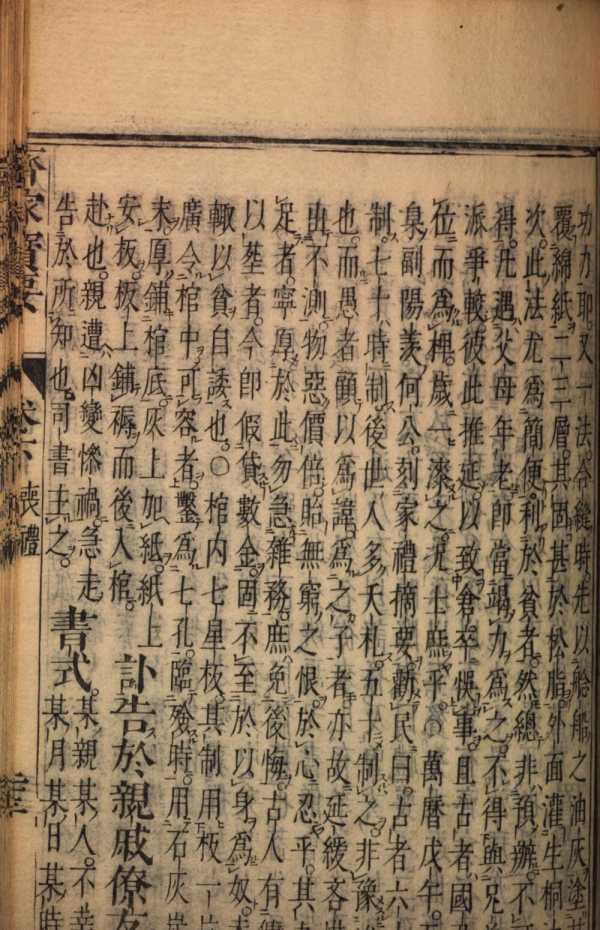 功力耶又一法合縫時先以艌船之油灰塗
覆綿紙二三層其固甚於松脂外面灌生桐
次此法尤為簡便利於貧者然總非預辦不
得凡遇父母年老即當竭力為之不得與兄
派爭較彼此推延以致倉卒悞事且古者國
位而為椑歲一漆之况士庶乎○萬曆戊午
臬副陽羨何公刻家禮摘要勸民曰古者六
制七十時制後世人多夭札五十制之非豫
也而愚者顧以為諱為之子者亦故延緩
出不測物惡價倍貽無窮之恨於心忍乎其
足者寧厚於此勿急雜務庶免後悔古人有
以塟者今即假貸數金固不至於以身為奴
輙以貧自諉也○棺内七星板其制用板一
廣令棺中可容者鑿為七孔臨殮時用石灰
末厚鋪棺底灰上加紙紙上
安板板上鋪褥而後入棺
訃告於親戚僚友
赴也親遭凶變慘禍急走
告於所知也司書主之
書式
某親某人不幸
某月某日某時
齊家寶要 卷下 喪禮